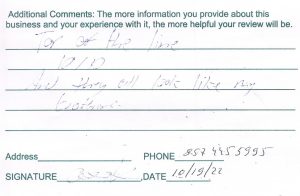 Additional Comments: The more information you provide about this
business and your experience with it, the more helpful your review will be.
Top of the line
10/10
And they all look like my
Address PHONE 857 445 5995
SIGNATURE DATE 10/19/22